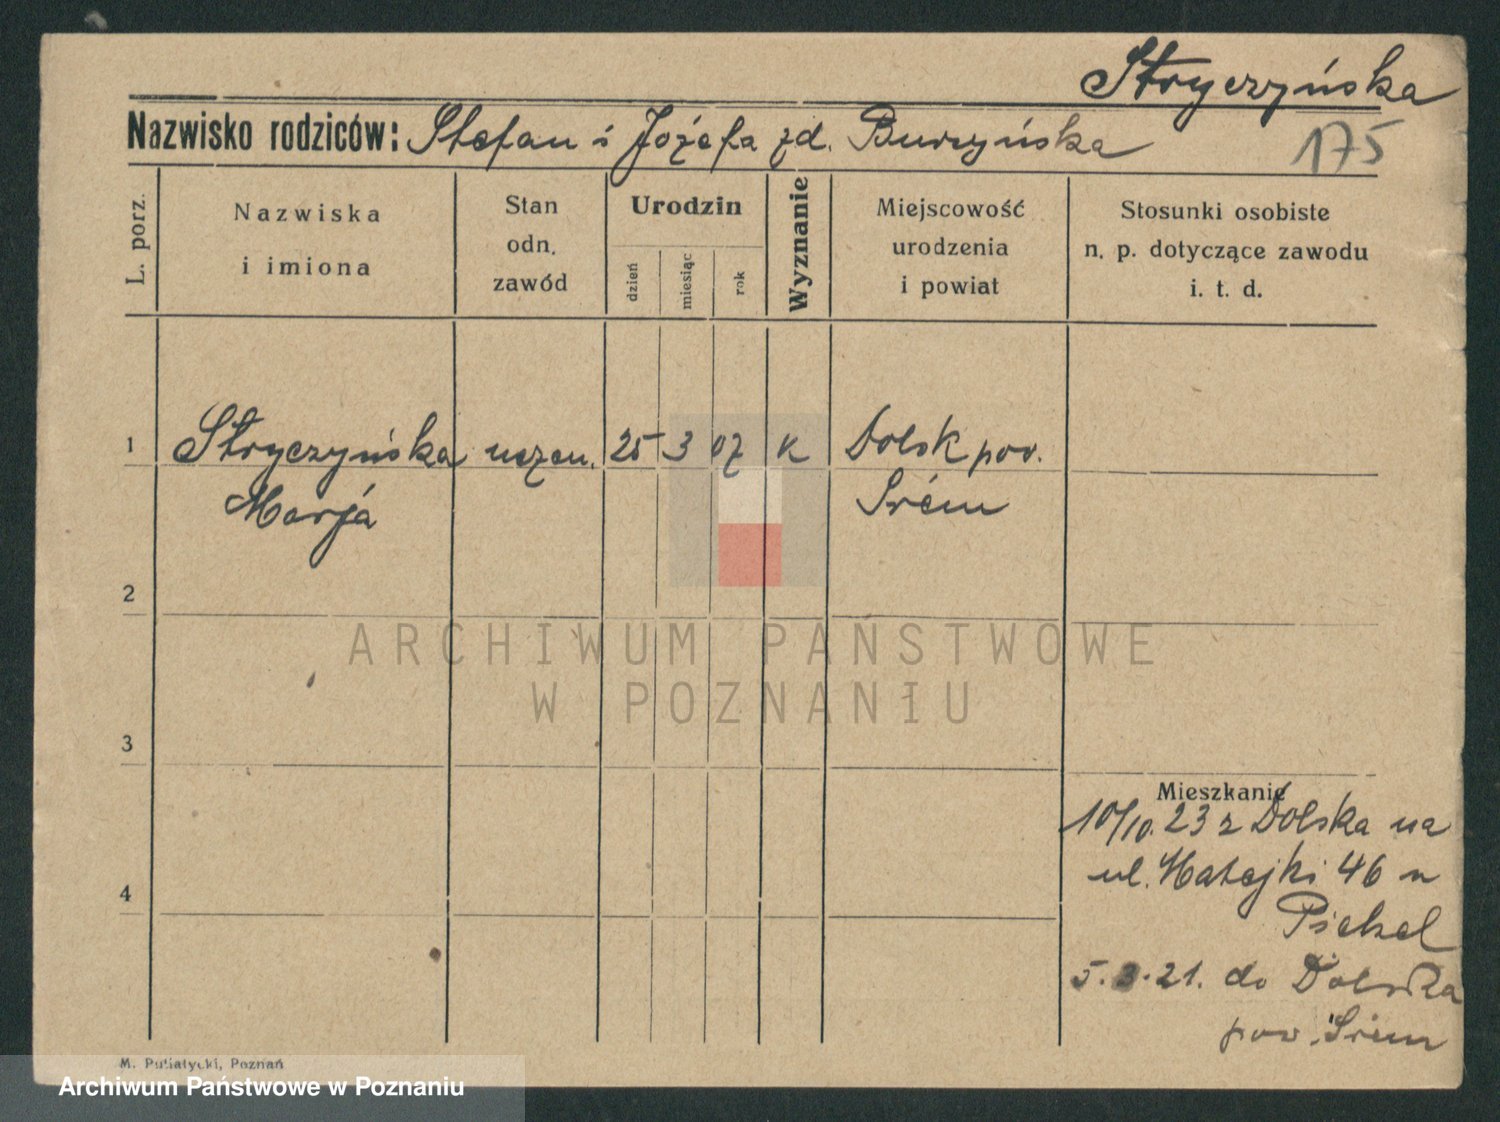 Stryczyńska
Nazwisko rodziców: Stefan i Józefa zd. Burzyńska
175
L. porz.
Nazwiska
i imiona
Stan
odn.
zawód
Urodzin
dzień
miesiąc
rok
Wyznanie
Miejscowość
urodzenia
i powiat
Stosunki osobiste
n. p. dotyczące zawodu
i. t. d.
1 Stryczyńska uczen. 25 3 07 K Dolsk pow.
Marja Śrem
2
3
4
Mieszkanie
10/10.23 z Dolska na
ul. Matejki 46 u
Piekel
5. 3. 21. do Dolska
pow. Śrem
M. Putiatycki, Poznań
ARCHIWUM PAŃSTWOWE
W POZNANIU
Archiwum Państwowe w Poznaniu